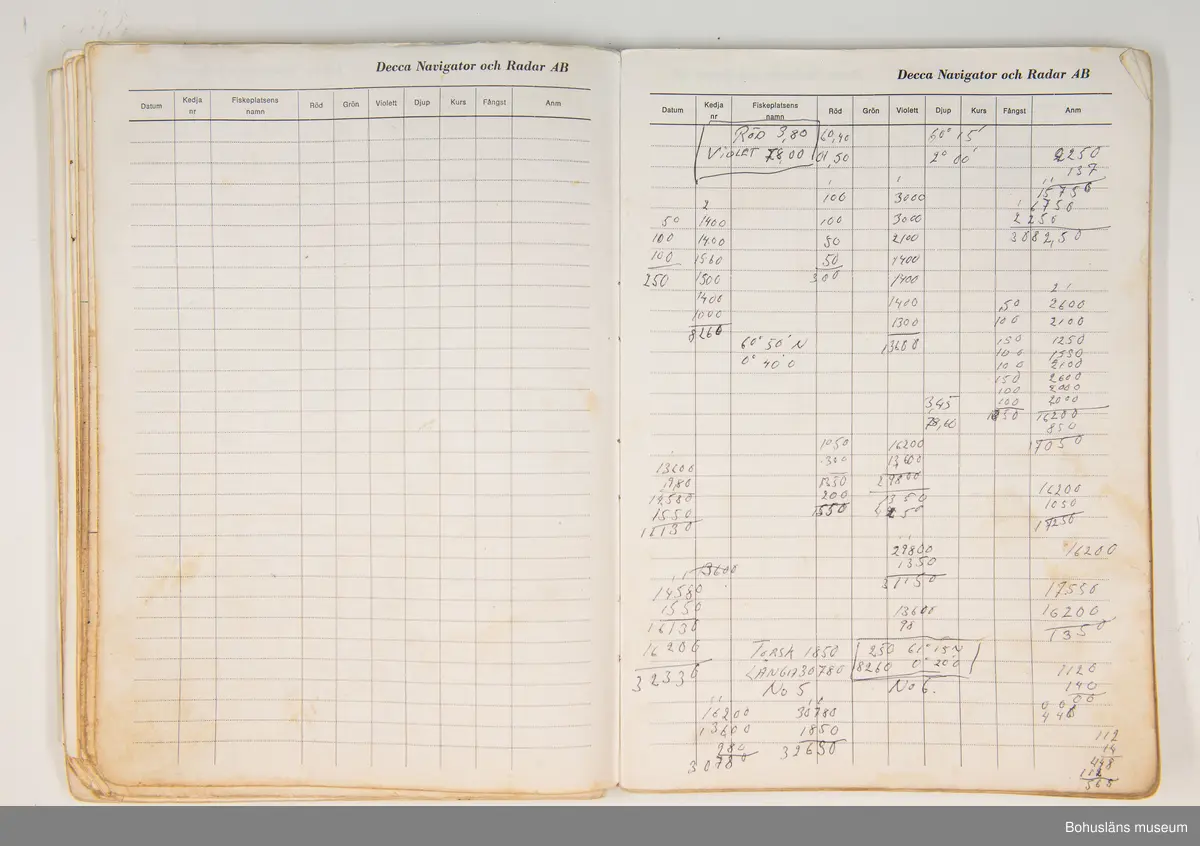 Decca Navigator och Radar AB
Datum Kedja nr Fiskeplatsens namn Röd Grön Violett Djup Kurs Fångst Anm
Decca Navigator och Radar AB
Datum Kedja nr Fiskeplatsens namn Röd Grön Violett Djup Kurs Fångst Anm
RÖD 3,80 60,40 60° 15'
VIOLET 78,00 01,50 2° 00' 2250
137
100 3000 15750
2 1 6750
50 1400 100 3000 2250
100 1400 50 2100 3882,50
100 1560 50 1400
250 1500 300 1400
1400 1400 50 2600
1000 1300 100 2100
8260 60° 50' N 13600 150 1250
0° 40' 0 100 1550
100 2100
150 2600
100 2000
345 100 2000
78,60 16200
850
1050 16200 17050
13600 300 13600
980 1350 29800 16200
14580 200 1350 1050
1550 1550 17250
16130
29800 16200
1350
13600 31150
14580 17550
1550 13600 16200
16130 98 1350
16200 TORSK 1850 250 61° 15 N
32330 LÅNGA 30780 8260 0° 20'0 1120
No 5 No 6. 140
00
16200 30780 448
13600 1850 112
980 32630 14
3078 448
112
565
Bohusläns museum